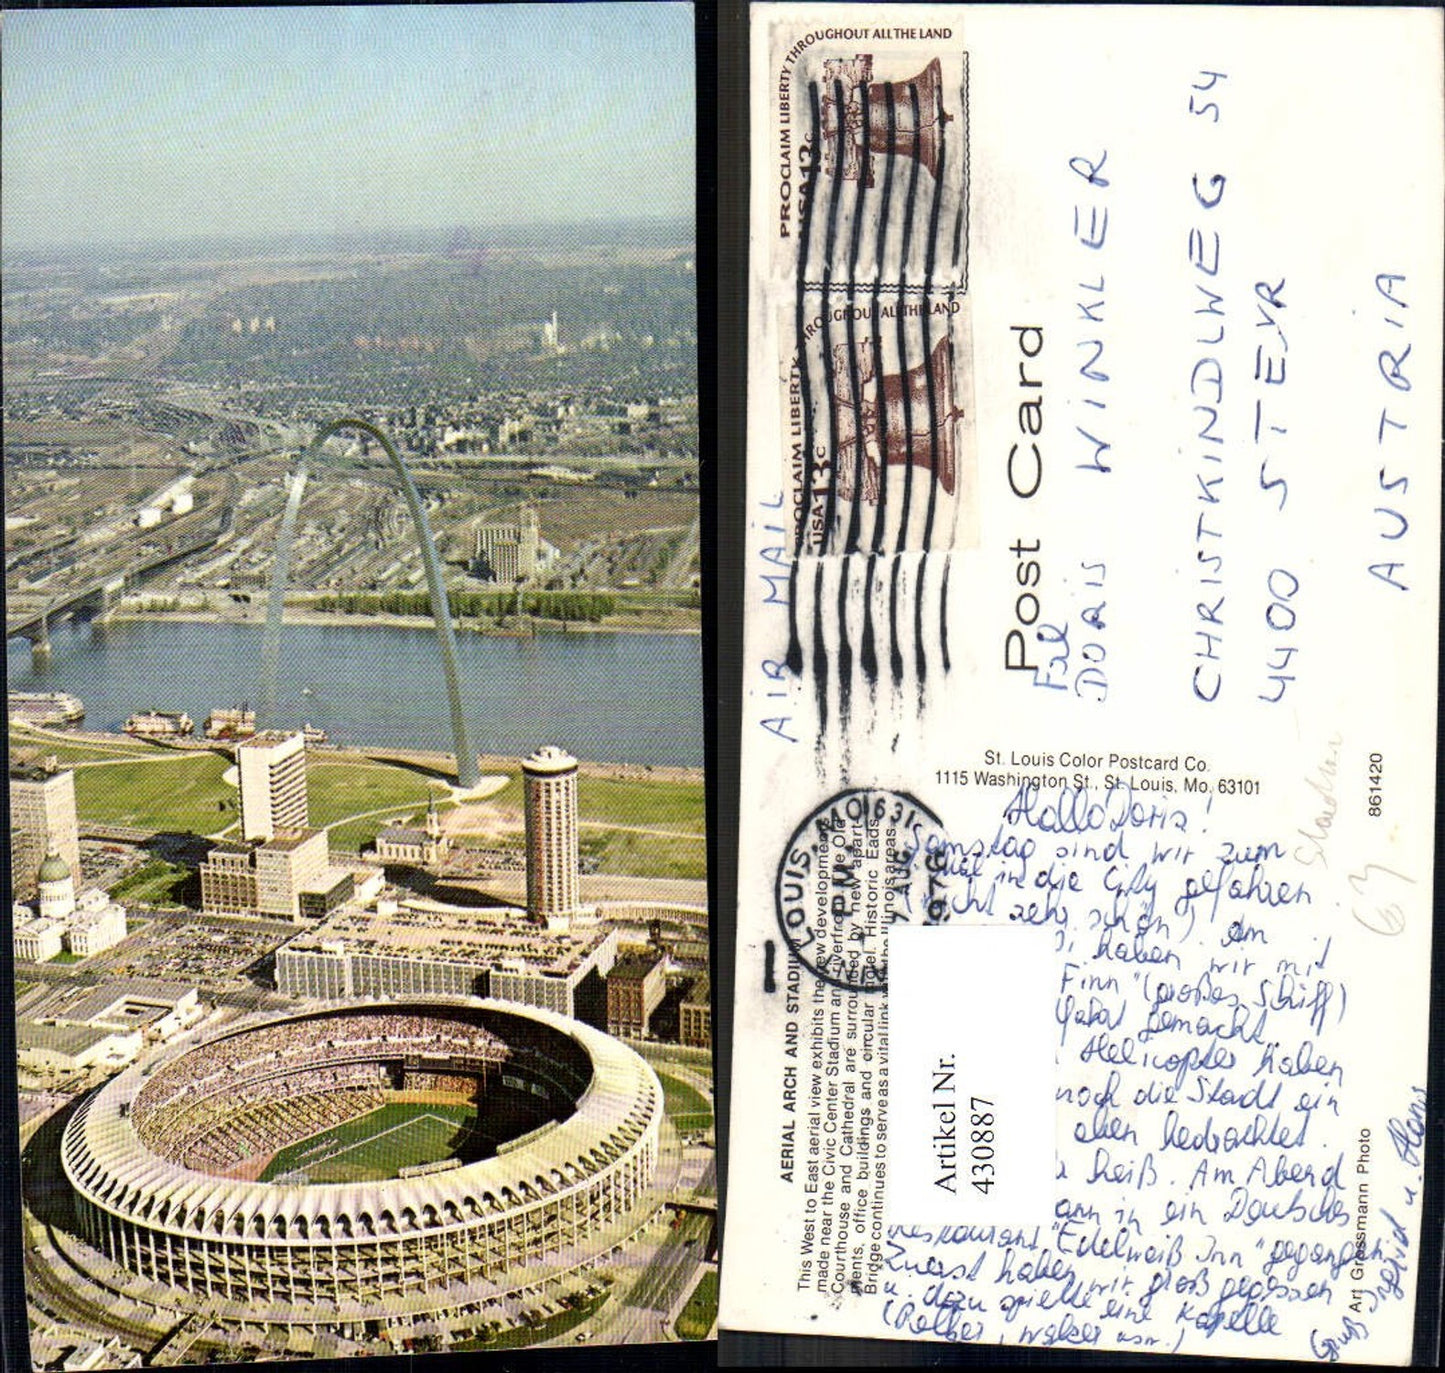 PROCLAIM LIBERTY THROUGHOUT ALL THE LAND
USA 13c
PROCLAIM LIBERTY THROUGHOUT ALL THE LAND
USA 13c
AIR MAIL
Post Card
Frl
DORIS WINKLER
CHRISTKINDLWEG 54
4400 STEYR
AUSTRIA
St. Louis Color Postcard Co.
1115 Washington St., St. Louis, Mo. 63101
861420
ST. LOUIS, MO 631
PM
AUG
1976
AERIAL ARCH AND STADIUM
This West to East aerial view exhibits the new developments
made near the Civic Center Stadium and riverfront. The Old
Courthouse and Cathedral are surrounded by new apart-
ments, office buildings and circular motel. Historic Eads
Bridge continues to serve as a vital link with the Illinois areas
Hallo Doris!
Samstag sind wir zum
in die City gefahren
nicht sehr schön) Am
haben wir mit
Finn" (großes Schiff)
gemacht.
Helicopter haben
noch die Stadt ein
oben betrachtet.
heiß. Am Abend
in ein Deutsches
Restaurant "Edelweiß Inn" gegangen
Zuerst haben wir groß gegessen
u. dazu spielte eine Kapelle
(Polka, Walzer usw.)
Gruß Ingrid u. Hans
Artikel Nr.
430887
Art Grossmann Photo